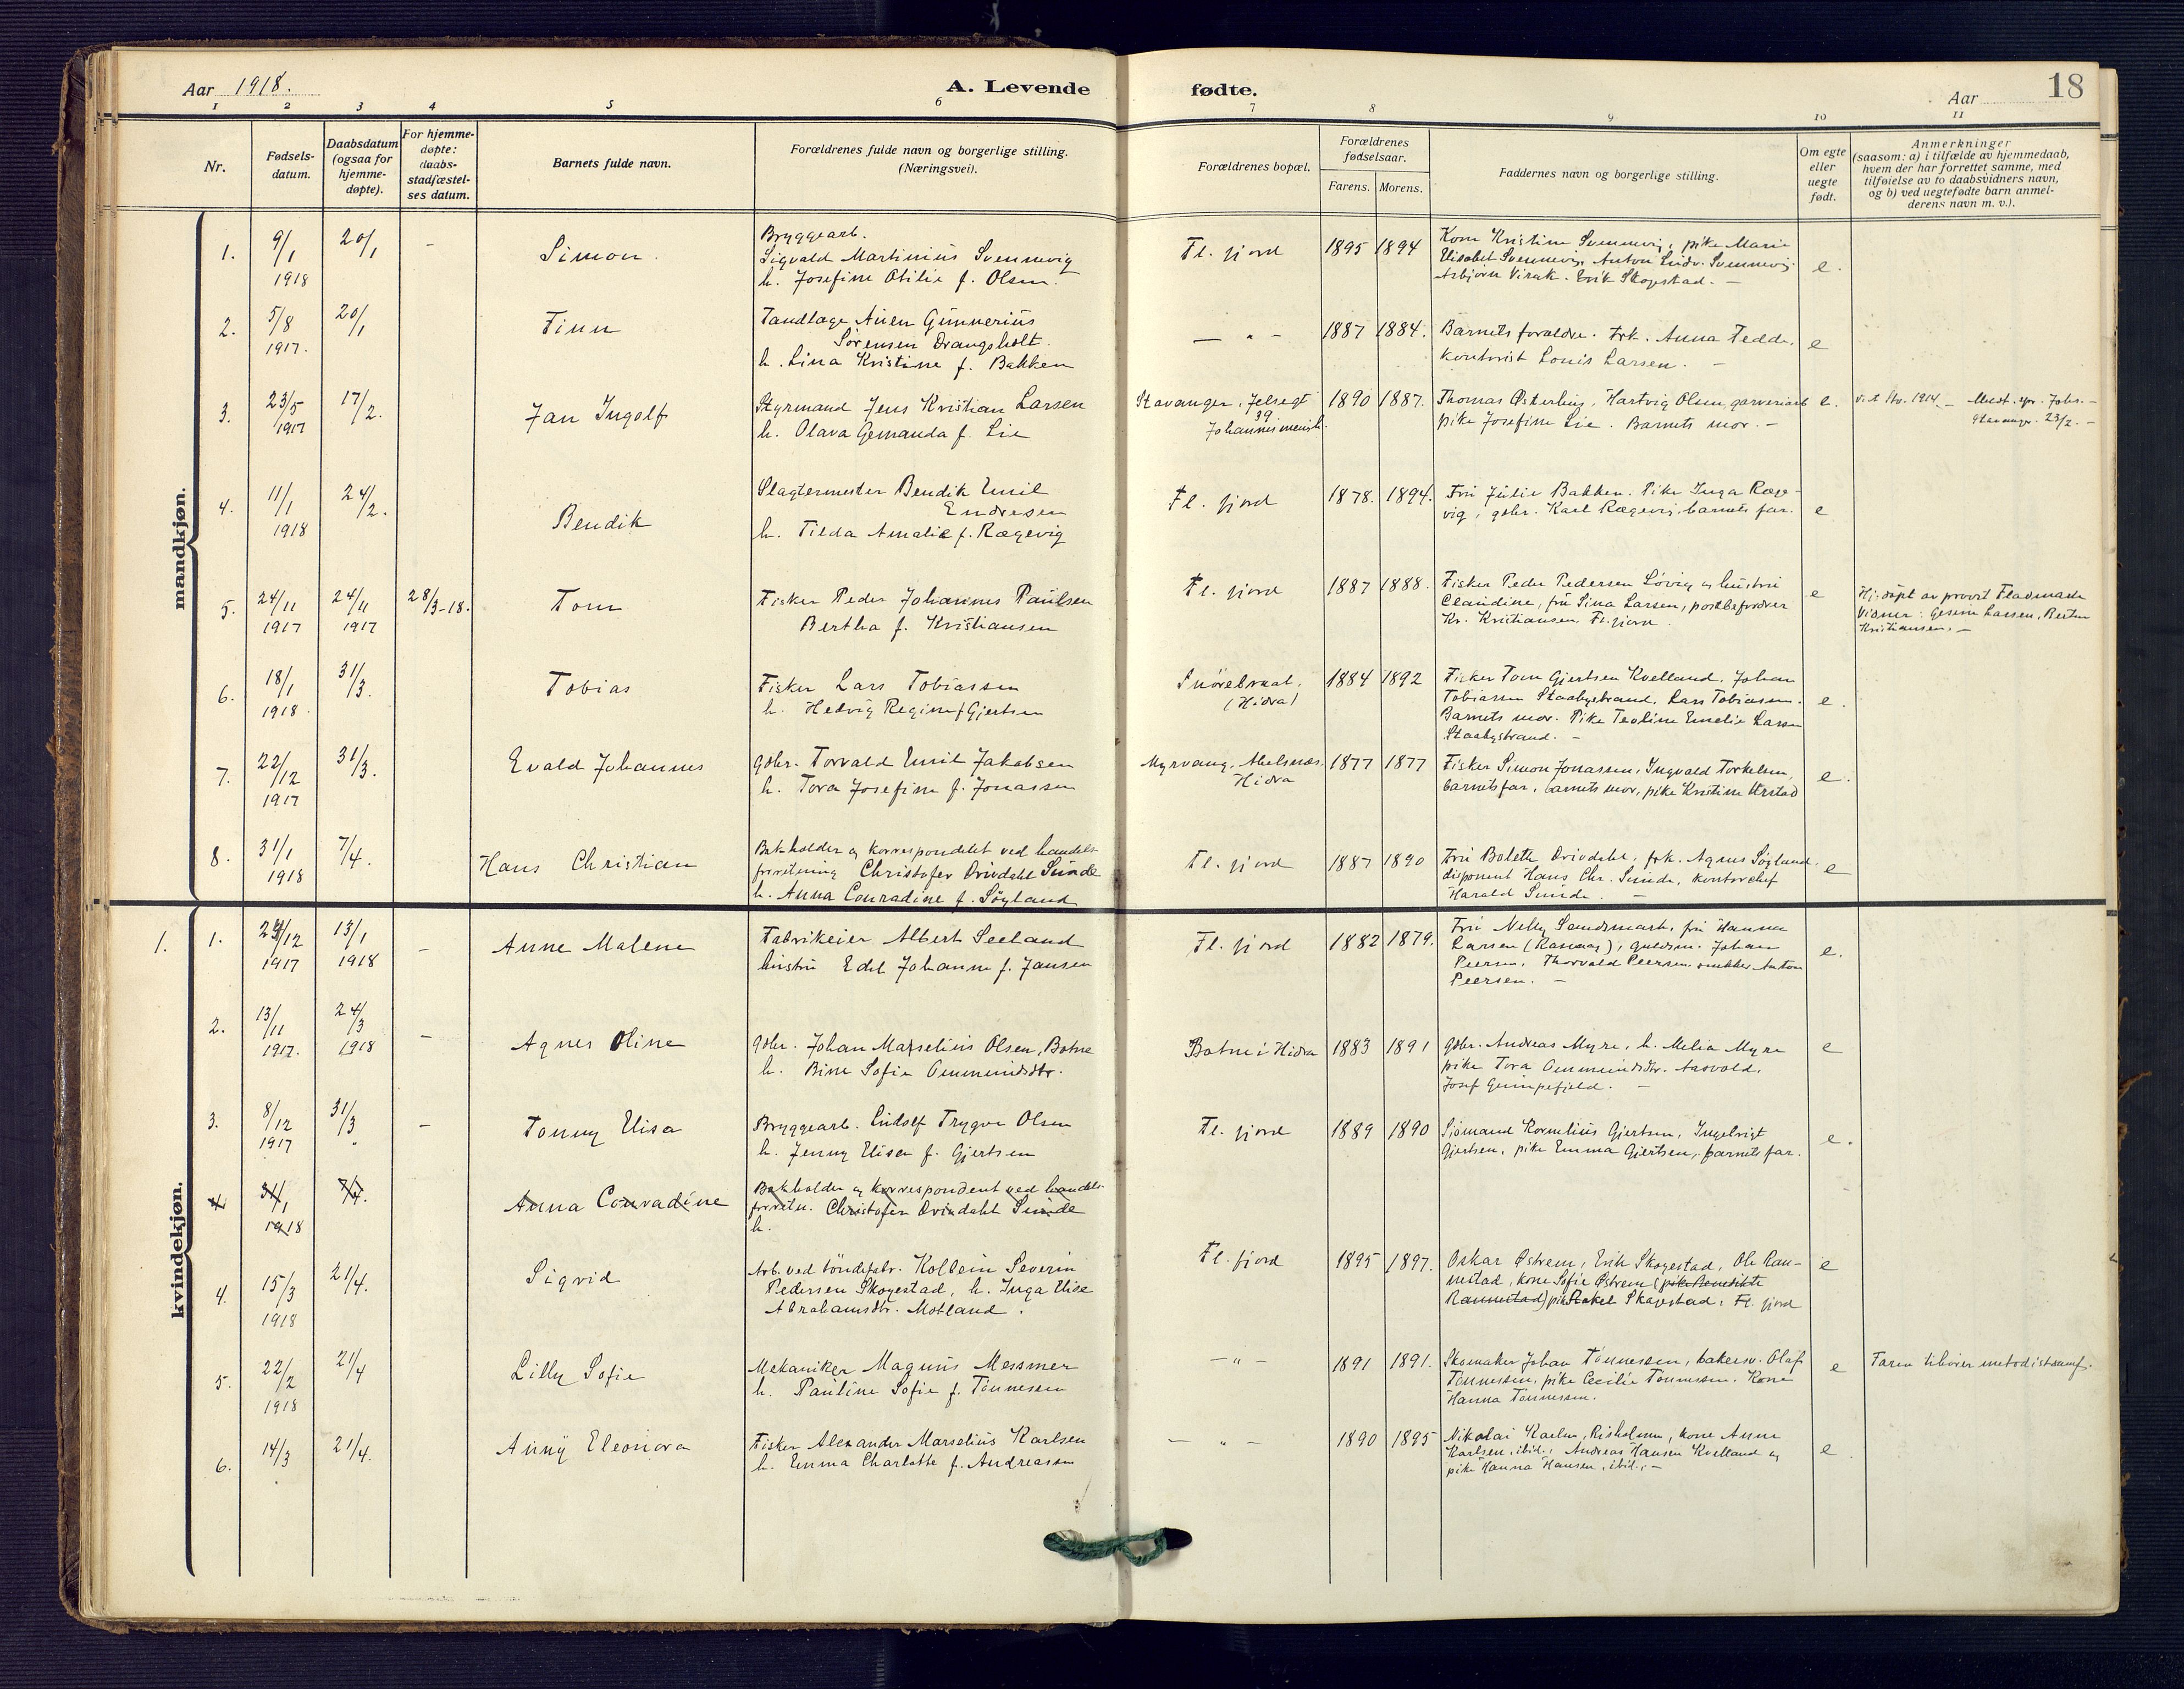 Aar 1918.
A. Levende fødte.
Aar
18
1 2 3 4 5 6 7 8 9 10 11
Nr.
Fødsels-
datum.
Daabsdatum
(ogsaa for
hjemme-
døpte).
For hjemme-
døpte:
daabs-
stadfæstel-
ses datum.
Barnets fulde navn.
Forældrenes fulde navn og borgerlige stilling.
(Næringsvei).
Forældrenes bopæl.
Forældrenes
fødselsaar.
Farens. Morens.
Faddernes navn og borgerlige stilling.
Om egte
eller
uegte
født.
Anmerkninger
(saasom: a) i tilfælde av hjemmedaab,
hvem der har forrettet samme, med
tilføielse av to daabsvidners navn,
og b) ved uegtefødte barn anmel-
derens navn m. v.).
mandkjøn.
1. 9/1 1918 20/1 – Simon.
Bryggearb.
Sigvald Martinius Svennevig
h. Josefine Otilie f. Olsen.
Fl. fjord 1895 1894
Kone Kristine Svennevig, pike Marie
Elisabet Svennevig, Anton Ludv. Svennevig
Asbjørn Virak. Erik Skogestad. –
e.
2. 5/8 1917. 20/1 Finn
Tandlæge Auen Gunnerius
Sørensen Drangsholt.
h. Lina Kristine f. Bakken
– " – 1887 1884.
Barnets forældre. Frk. Anna Fedde,
kontorist Louis Larsen. –
e
3. 23/5 1917 17/2. Jan Ingolf
Styrmand Jens Kristian Larsen
h. Olava Gemanda f. Lie
Stavanger, Jelsegt
39
Johannis menigh.
1890 1887.
Thomas Østerhus, Hartvig Olsen, garveriarb
pike Josefine Lie. Barnets mor. –
e.
v. i Stv. 1914. – Medt. spr. Johs. –
Stavanger 23/2. –
4. 11/1 1918 24/2. Bendik
Slagtermester Bendik Emil
Endresen
h. Tilda Amalie f. Rægevig
Fl. fjord 1878. 1894.
Fru Julie Bakken. Pike Inga Ræge-
vig, gbr. Karl Rægevig, barnets far.
e
5. 24/11 1917 24/11 1917 28/3-18. Tom
Fisker Peder Johannes Paulsen
Bertha f. Kristiansen
Fl. fjord 1887 1888.
Fisker Peder Pedersen Løvig og hustru
Claudine, fru Sina Larsen, postbefordrer
Kr. Kristiansen, Fl. fjord.
e
Hj. døpt av provst Fladmark
Vidner: Gesine Larsen, Berta
Kristiansen. –
6. 18/1 1918. 31/3. Tobias
Fisker Lars Tobiassen
h. Hedvig Regine f. Gjertsen
Snørebraat,
(Hidra)
1884 1892
Fisker Tom Gjertsen Kvelland, Johan
Tobiassen Staabystrand, Lars Tobiassen.
Barnets mor. Pike Teoline Emelie Larsen
Staabystrand. –
e.
7. 22/12 1917 31/3. Evald Johannes
gbr. Torvald Emil Jakobsen
h. Tora Josefine f. Jonassen
Myrvang, Abelsnæs.
Hidra
1877 1877
Fisker Simon Jonassen, Ingvald Torkelsen,
barnets far, barnets mor, pike Kristine Urstad
e.
8. 31/1 1918 7/4. Hans Christian
Bokholder og korrespondent ved handels-
forretning Christofer Drivdahl Sunde
h. Anna Conradine f. Søyland
Fl. fjord 1887 1890
Fru Bolette Drivdahl, frk. Agnes Søyland.
disponent Hans Chr. Sunde, kontorchef
Harald Sunde. –
e
kvindekjøn.
1. 1. 24/12 1917 13/1 1918 – Anne Malene
Fabrikeier Albert Seeland
hustru Edel Johanne f. Jansen
Fl. fjord 1882 1879.
Fru Nelly Sandsmark, fru Hanna
Larsen, guldsm. Johan
Peersen, Thorvald Peersen, snekker Anton
Peersen. –
e.
2. 13/11 1917. 24/3 1918 – Agnes Oline
gbr. Johan Marselius Olsen, Botne
h. Bine Sofie Ommundsdtr.
Botne i Hidra 1883 1891
gbr. Andreas Myre, h. Melia Myre
pike Tora Ommundsdtr. Aasvold,
Josef Gumpefjeld. –
e
3. 8/12 1917 31/3 " – Tonny Elisa
Bryggearb. Endolf Trygve Olsen
h. Jenny Elisa f. Gjertsen
Fl. fjord 1889 1890
Sjømand Kornelius Gjertsen, Ingebrigt
Gjertsen, pike Emma Gjertsen, barnets far.
e.
4. 31/1 1918 7/4. Anna Conradine
Bokholder og korrespondent ved handels-
forretn. Christofer Drivdahl Sunde
h.
4. 15/3 1918 21/4. Sigrid
Arb. ved tøndefabr. Kolbein Severin
Pedersen Skogestad, h. Inga Elise
Abrahamsdtr. Motland.
Fl. fjord 1895 1897.
Oskar Østrem, Erik Skogestad, Ole Ran-
nestad, kone Sofie Østrem (pike Benedikte
Rannestad) pike Rakel Skogestad, Fl. fjord
e
5. 22/2 1918 21/4 Lilly Sofie
Mekaniker Magnus Messmer
h. Pauline Sofie f. Tønnessen
– " – 1891 1891.
Skomaker Johan Tønnessen, bakersv. Olaf
Tønnessen, pike Cecilie Tønnessen. Kone
Hanna Tønnessen.
e
Faren tilhører metodistsamf.
6. 14/3 21/4. Anny Eleonora
Fisker Alexander Marselius Karlsen
h. Emma Charlotte f. Andreassen
– " – 1890 1895
Nikolai Karlsen, Risholmen, kone Anne
Karlsen, ibid., Andreas Hansen Kvelland og
pike Hanna Hansen, ibid., –
e.